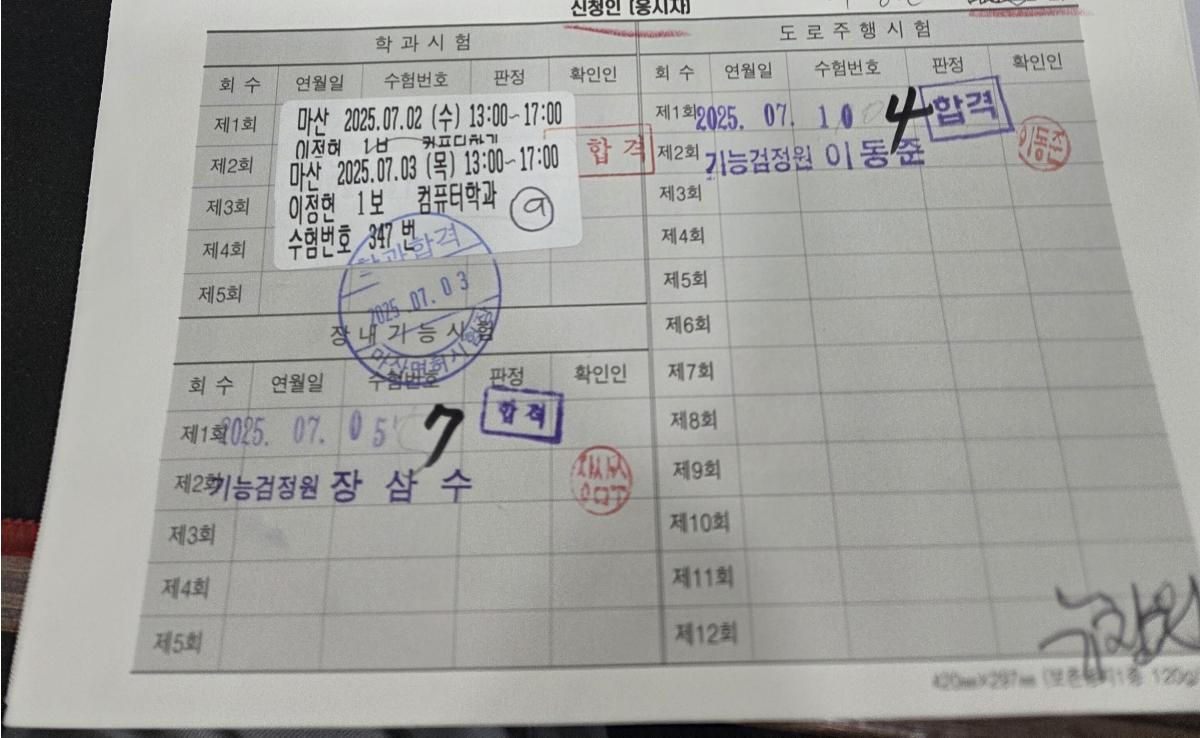 신청인 (응시자)
학과시험
회 수 연월일 수험번호 판정 확인인
제1회 마산 2025.07.02 (수) 13:00~17:00
이정현 1보
제2회 마산 2025.07.03 (목) 13:00~17:00 합격
제3회 이정현 1보 컴퓨터학과
제4회 수험번호 347 번
학과합격
제5회
2025.07.03
마산면허시험장
장내기능시험
회 수 연월일 수험번호 판정 확인인
제1회 2025. 07. 05 7 합격
제2회 기능검정원 장 삼 수
제3회
제4회
제5회
도로주행시험
회 수 연월일 수험번호 판정 확인인
제1회 2025. 07. 10 4 합격
제2회 기능검정원 이동준 이동준
제3회
제4회
제5회
제6회
제7회
제8회
제9회
제10회
제11회
제12회
420㎜×297㎜ (보존용지1종 120g/